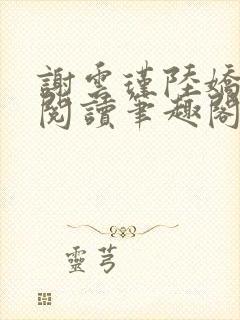 謝雲瑾陸嬌
閱讀筆趣閣
靈芎